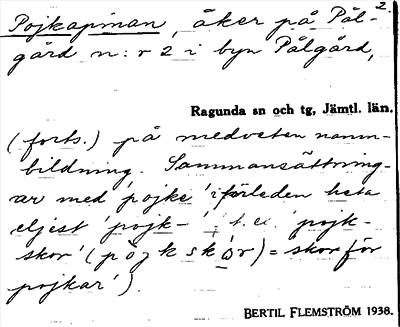 2.
Pojkapinan, åker på Pål-
gård n:r 2 i byn Pålgård,
Ragunda sn och tg, Jämtl. län.
(forts.) på medveten namn-
bildning. Sammansättning-
ar med 'pojke' i förleden heta
eljest 'pojk-', t.ex. 'pojk-
skor' (pöjkskọr) = skor för
pojkar').
BERTIL FLEMSTRÖM 1938.